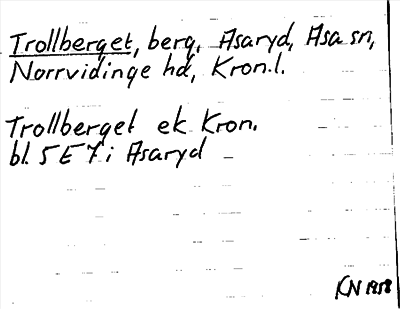 Trollberget, berg, Asaryd, Asa sn,
Norrvidinge hd, Kron.l.
Trollberget ek Kron.
bl. 5 E 7 i Asaryd
KN 1958